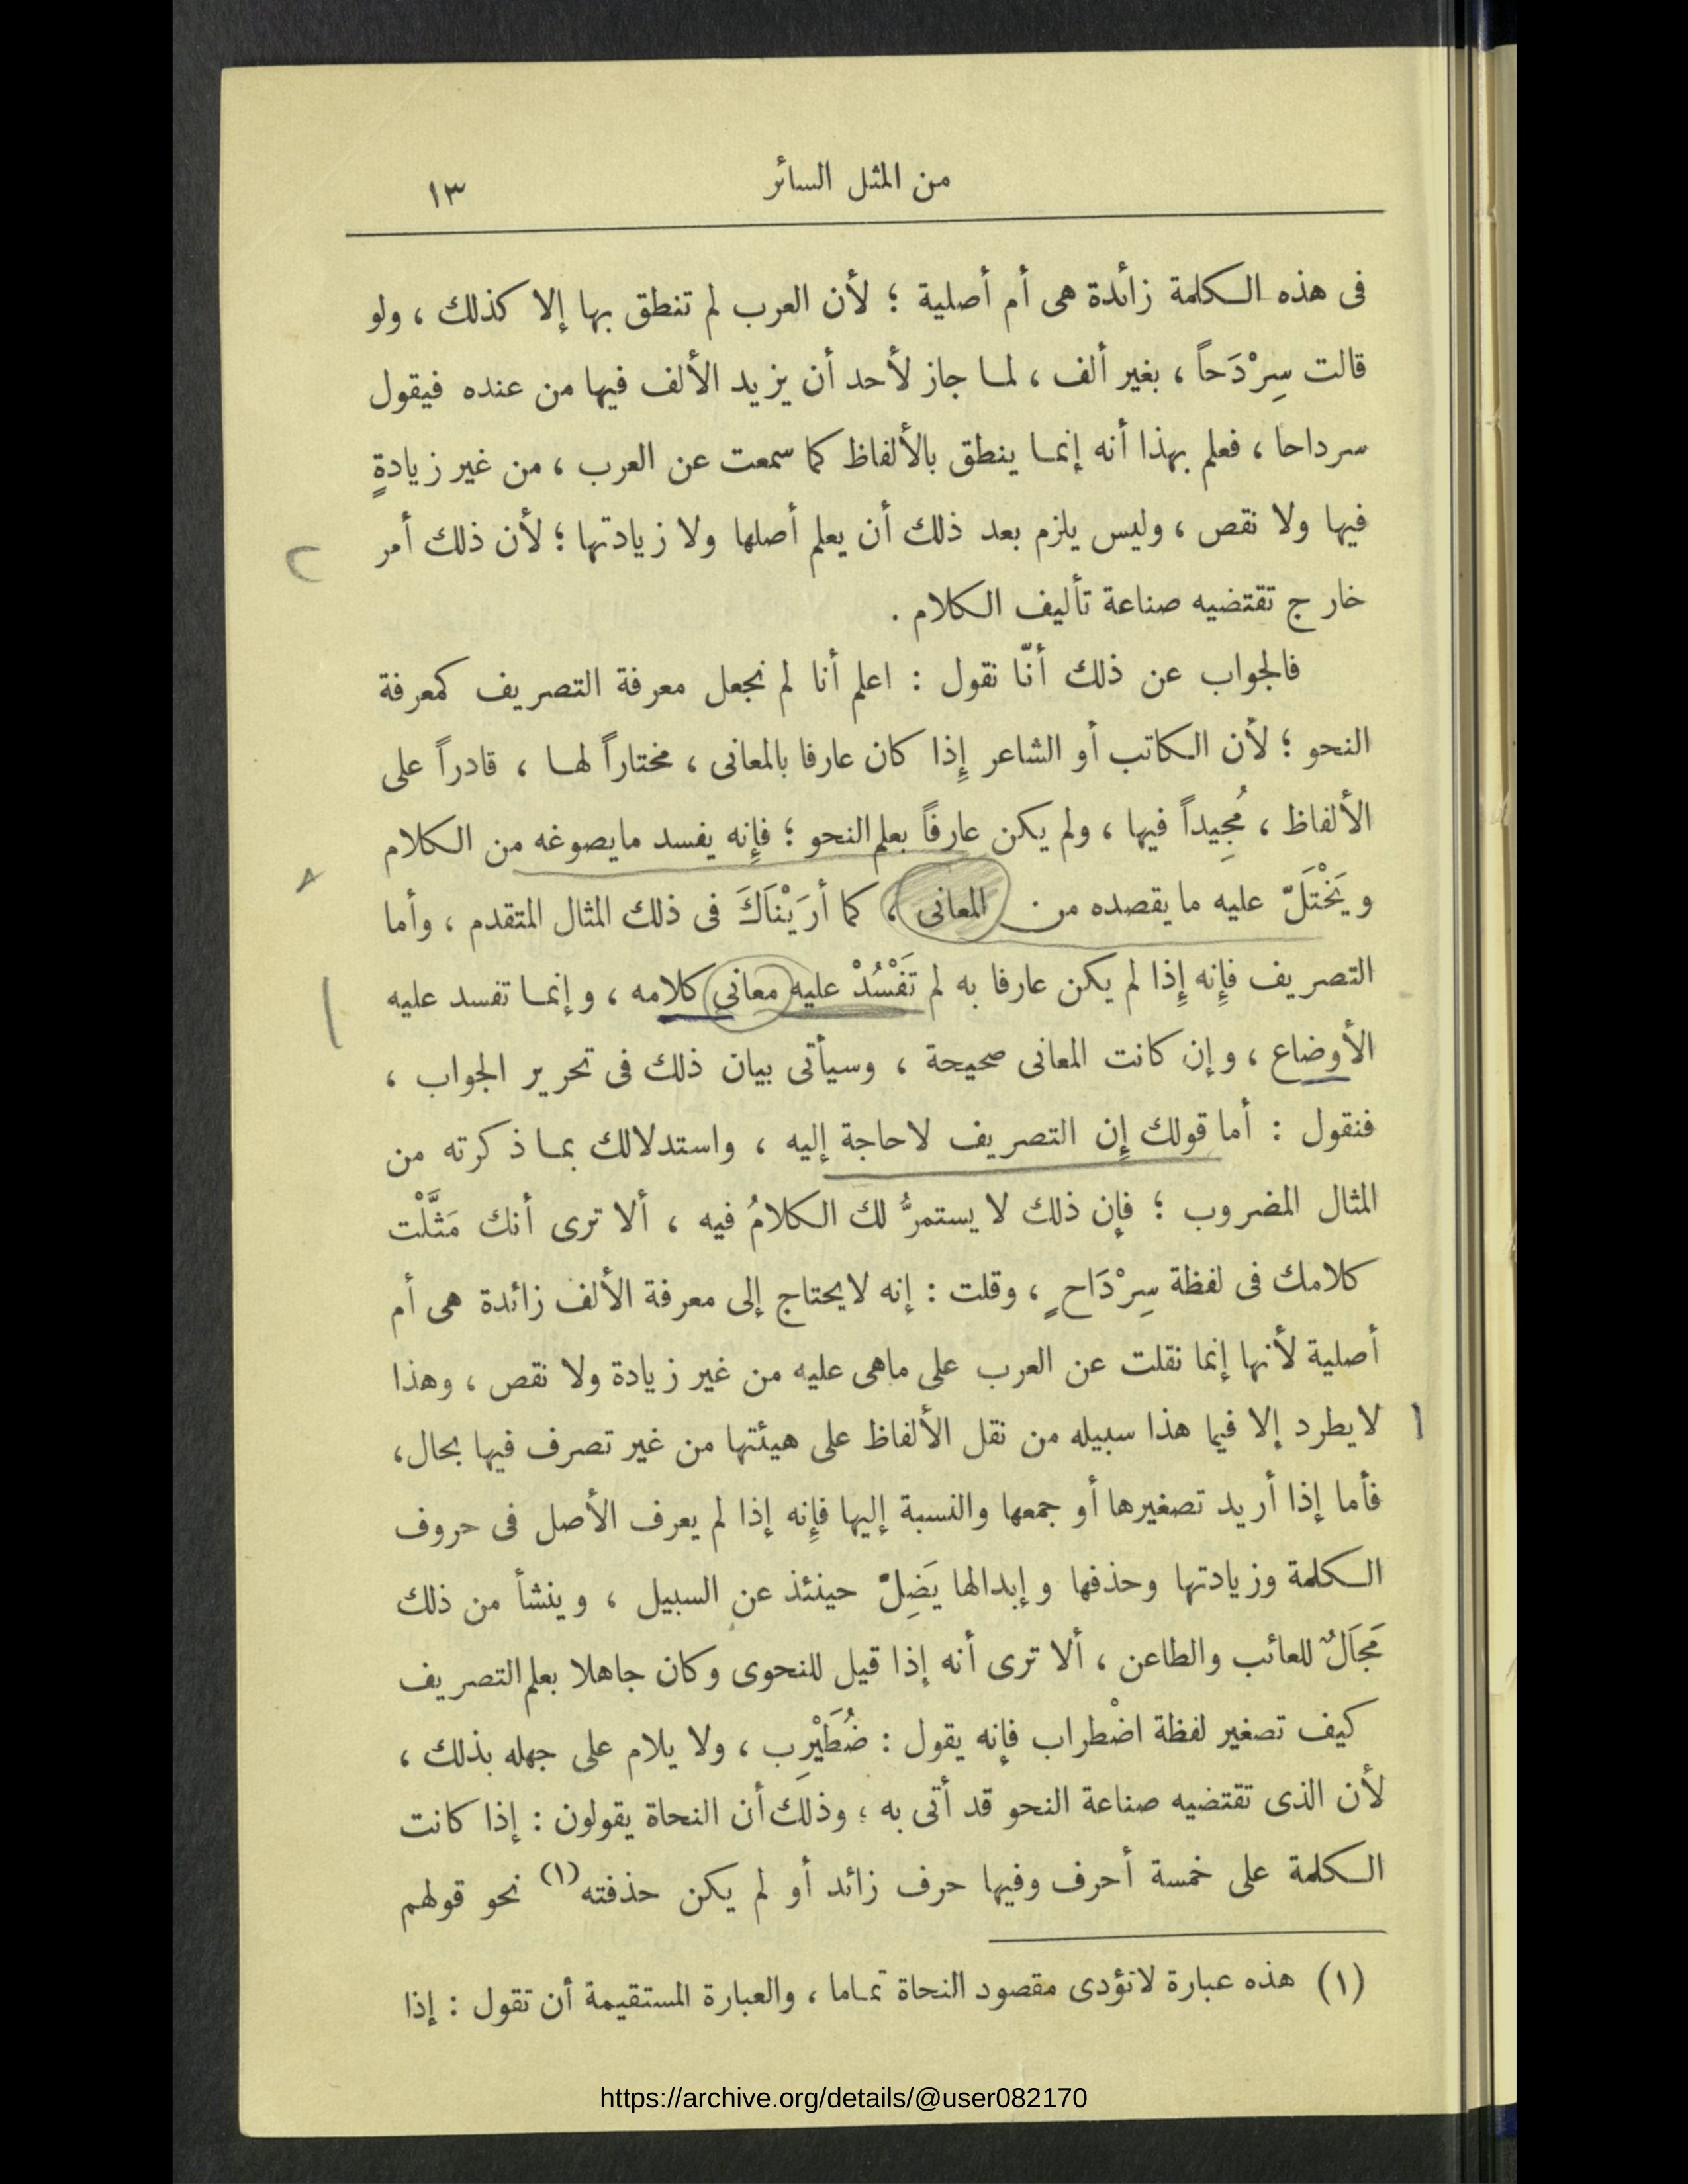 من المثل السائر ١٣
فى هذه الكلمة زائدة هى أم أصلية ؛ لأن العرب لم تنطق بها إلا كذلك ، ولو
قالت سِرْدَحاً ، بغير ألف ، لما جاز لأحد أن يزيد الألف فيها من عنده فيقول
سرداحا ، فعلم بهذا أنه إنما ينطق بالألفاظ كما سمعت عن العرب ، من غير زيادةٍ
فيها ولا نقص ، وليس يلزم بعد ذلك أن يعلم أصلها ولا زيادتها ؛ لأن ذلك أمر
خارج تقتضيه صناعة تأليف الكلام .
فالجواب عن ذلك أنّا نقول : اعلم أنا لم نجعل معرفة التصريف كمعرفة
النحو ؛ لأن الكاتب أو الشاعر إِذا كان عارفا بالمعانى ، مختاراً لها ، قادراً على
الألفاظ ، مُجِيداً فيها ، ولم يكن عارفاً بعلم النحو ؛ فإِنه يفسد مايصوغه من الكلام
ويَخْتَلّ عليه مايقصده من المعانى ، كما أرَيْنَاكَ فى ذلك المثال المتقدم ، وأما
التصريف فإِنه إِذا لم يكن عارفا به لم تَفْسُدْ عليه معانى كلامه ، وإنما تفسد عليه
الأوضاع ، وإن كانت المعانى صحيحة ، وسيأتى بيان ذلك فى تحرير الجواب ،
فنقول : أما قولك إِن التصريف لاحاجة إليه ، واستدلالك بما ذكرته من
المثال المضروب ؛ فإن ذلك لا يستمرُّ لك الكلامُ فيه ، ألا ترى أنك مَثَّلْت
كلامك فى لفظة سِرْدَاحٍ ، وقلت : إنه لايحتاج إلى معرفة الألف زائدة هى أم
أصلية لأنها إنما نقلت عن العرب على ماهى عليه من غير زيادة ولا نقص ، وهذا
لايطرد إلا فيما هذا سبيله من نقل الألفاظ على هيئتها من غير تصرف فيها بحال،
فأما إذا أريد تصغيرها أو جمعها والنسبة إليها فإِنه إذا لم يعرف الأصل فى حروف
الكلمة وزيادتها وحذفها وإبدالها يَضِلّ حينئذ عن السبيل ، وينشأ من ذلك
مَجَالٌ للعائب والطاعن ، ألا ترى أنه إذا قيل للنحوى وكان جاهلا بعلم التصريف
كيف تصغير لفظة اضْطراب فإنه يقول : ضُطَيْرِب ، ولا يلام على جهله بذلك ،
لأن الذى تقتضيه صناعة النحو قد أتى به ؛ وذلك أن النحاة يقولون : إذا كانت
الكلمة على خمسة أحرف وفيها حرف زائد أو لم يكن حذفته (١) نحو قولهم
(١) هذه عبارة لاتؤدى مقصود النحاة تماما ، والعبارة المستقيمة أن تقول : إذا
https://archive.org/details/@user082170